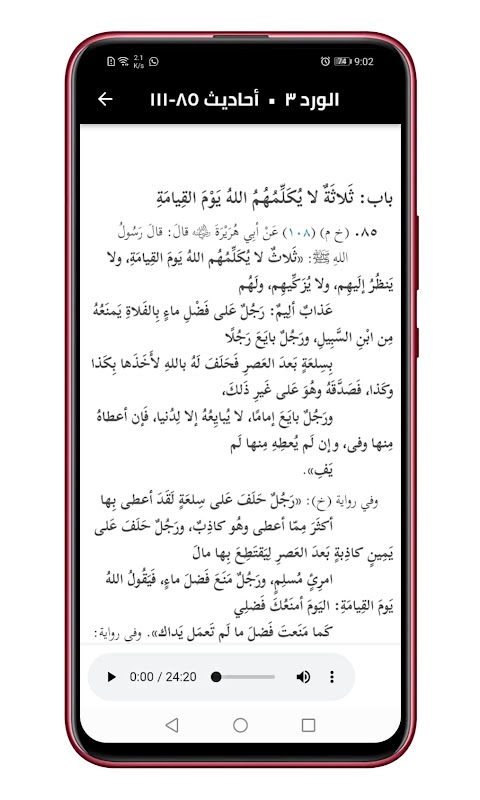 2.1 K/s 74 9:02
الورد ٣ • أحاديث ٨٥-١١١
باب: ثَلاثَةٌ لا يُكَلِّمُهُمُ اللهُ يَوْمَ القِيامَةِ
٠٨٥ (خ م) (١٠٨) عَنْ أبي هُرَيْرَةَ ﵁ قالَ: قالَ رَسُولُ
اللهِ ﷺ: «ثَلاثٌ لا يُكَلِّمُهُم اللهُ يَومَ القِيامَةِ، ولا
يَنظُرُ إلَيهِم، ولا يُزَكِّيهِم، ولَهُم
عَذابٌ ألِيمٌ: رَجُلٌ عَلى فَضْلِ ماءٍ بِالفَلاةِ يَمنَعُهُ
مِن ابْنِ السَّبِيلِ، ورَجُلٌ بايَعَ رَجُلًا
بِسِلعَةٍ بَعدَ العَصرِ فَحَلَفَ لَهُ بِاللهِ لأَخَذَها بِكَذا
وكَذا، فَصَدَّقَهُ وهُوَ عَلى غَيرِ ذَلكَ،
ورَجُلٌ بايَعَ إمامًا، لا يُبايِعُهُ إلا لِدُنيا، فَإن أعطاهُ
مِنها وفى، وإن لَم يُعطِهِ مِنها لَم
يَفِ».
وفي رواية (خ): «رَجُلٌ حَلَفَ عَلى سِلعَةٍ لَقَدْ أعطى بِها
أكثَرَ مِمّا أعطى وهُو كاذِبٌ، ورَجُلٌ حَلَفَ عَلى
يَمِينٍ كاذِبةٍ بَعدَ العَصرِ لِيَقتَطِعَ بِها مالَ
امرِئٍ مُسلِمٍ، ورَجُلٌ مَنَعَ فَضلَ ماءٍ، فَيَقُولُ اللهُ
يَومَ القِيامَةِ: اليَومَ أمنَعُكَ فَضلِي
كَما مَنَعتَ فَضلَ ما لَم تَعمَل يَداك». وفي رواية:
0:00 / 24:20